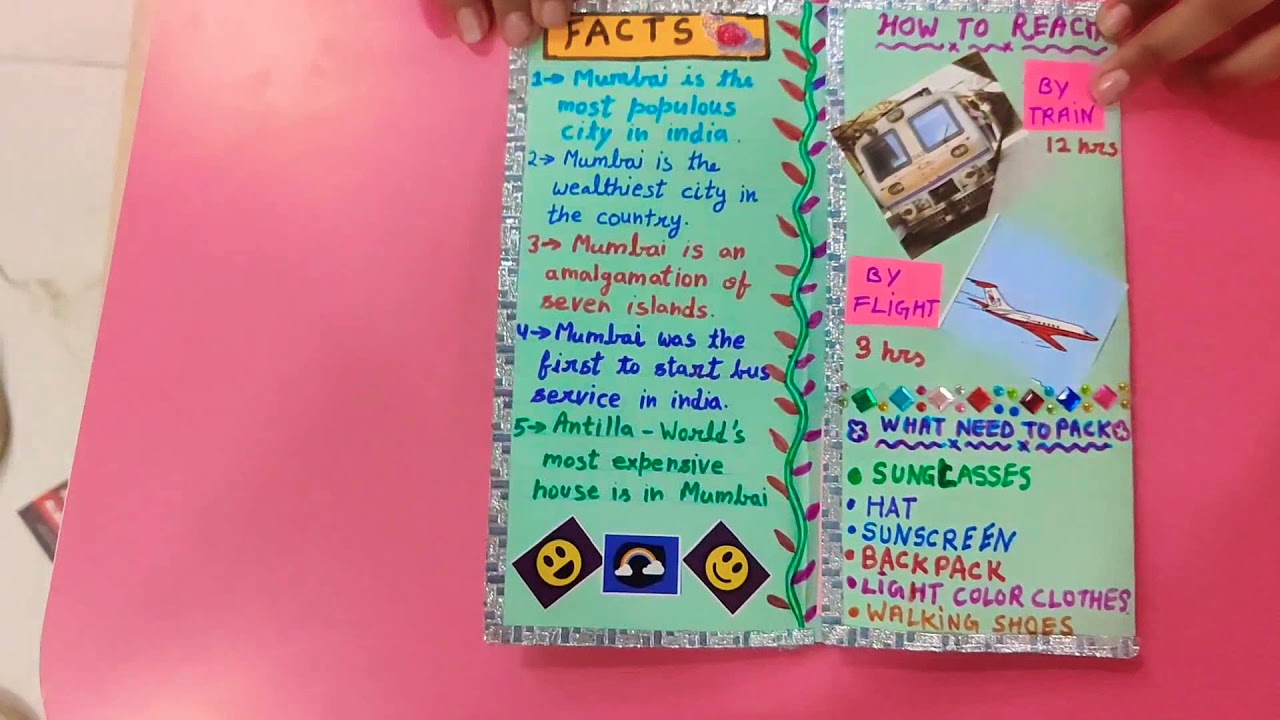 FACTS
1→ Mumbai is the
most populous
city in india.
2→ Mumbai is the
wealthiest city in
the country.
3→ Mumbai is an
amalgamation of
seven islands.
4→ Mumbai was the
first to start bus
service in india.
5→ Antilla - World's
most expensive
house is in Mumbai
HOW TO REACH
BY
TRAIN
12 hrs
BY
FLIGHT
3 hrs
WHAT NEED TO PACK
• SUNGLASSES
• HAT
• SUNSCREEN
• BACKPACK
• LIGHT COLOR CLOTHES
• WALKING SHOES